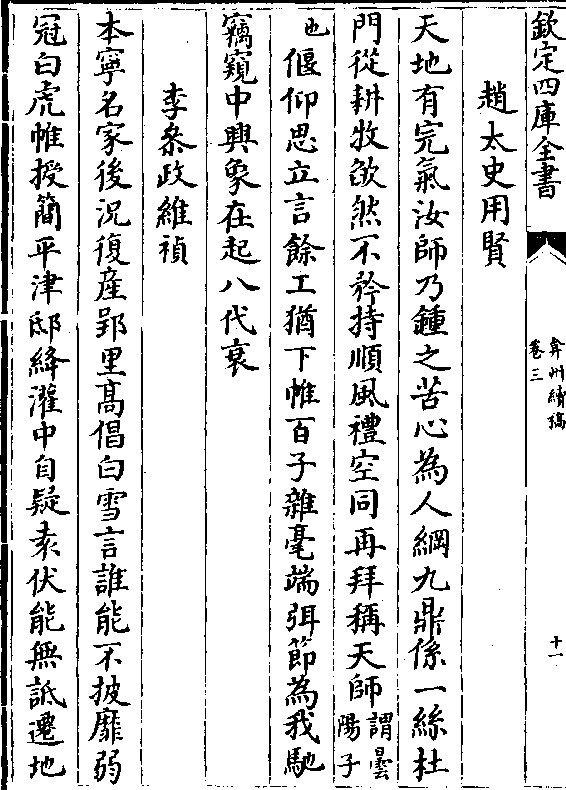 欽定四庫全書
弇州續稿
卷三
十一
趙太史用賢
天地有完氣汝師乃鍾之苦心為人綱九鼎係一絲杜
門從耕牧欿然不矜持順風禮空同再拜稱天師謂曇陽子
也偃仰思立言餘工猶下帷百子雜毫端弭節為我馳
竊窺中興象在起八代衰
李參政維禎
本寧名家後況復產郢里高倡白雪言誰能不披靡弱
冠白虎帷授簡平津邸絳灌中自疑袁伏能無詆遷地